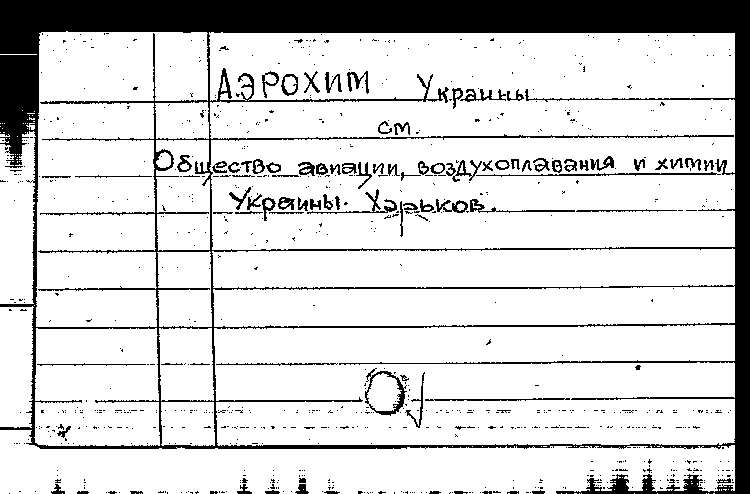 АЭРОХИМ Украины
см.
Общество авиации, воздухоплавания и химии
Украины. Харьков.